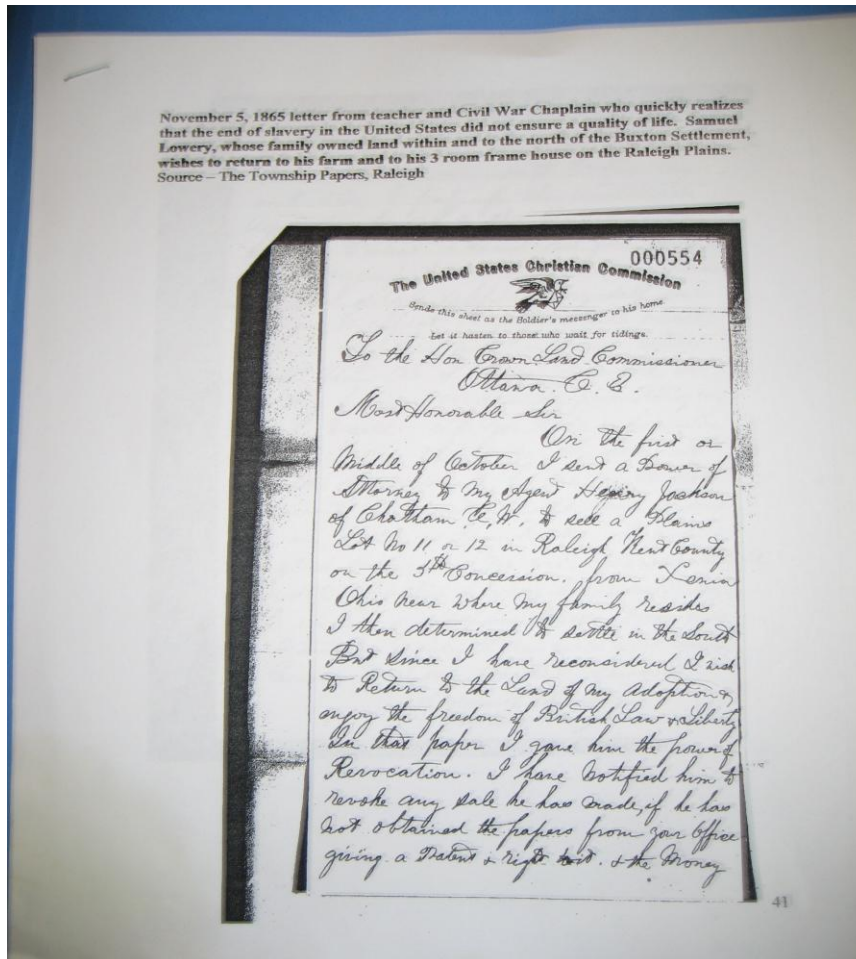 November 5, 1865 letter from teacher and Civil War Chaplain who quickly realizes
that the end of slavery in the United States did not ensure a quality of life. Samuel
Lowery, whose family owned land within and to the north of the Buxton Settlement,
wishes to return to his farm and to his 3 room frame house on the Raleigh Plains.
Source – The Township Papers, Raleigh
000554
The United States Christian Commission
Sends this sheet as the Soldier's messenger to his home.
Let it hasten to those who wait for tidings.
To the Hon Crown Land Commissioner
Ottawa C. E.
Most Honorable Sir
On the first or
Middle of October I sent a Power of
Attorney to my Agent Henry Jackson
of Chatham C. W. to sell a Plains
Lot No 11 or 12 in Raleigh Kent County
on the 5th Concession. from Xenia
Ohio near where my family resides
I then determined to settle in the South
But since I have reconsidered I wish
to Return to the Land of my Adoption &
enjoy the freedom of British Law & Liberty
In that paper I gave him the power of
Revocation. I have Notified him to
revoke any sale he has made, if he has
not obtained the papers from your Office
giving a Patent & right & the Money
41